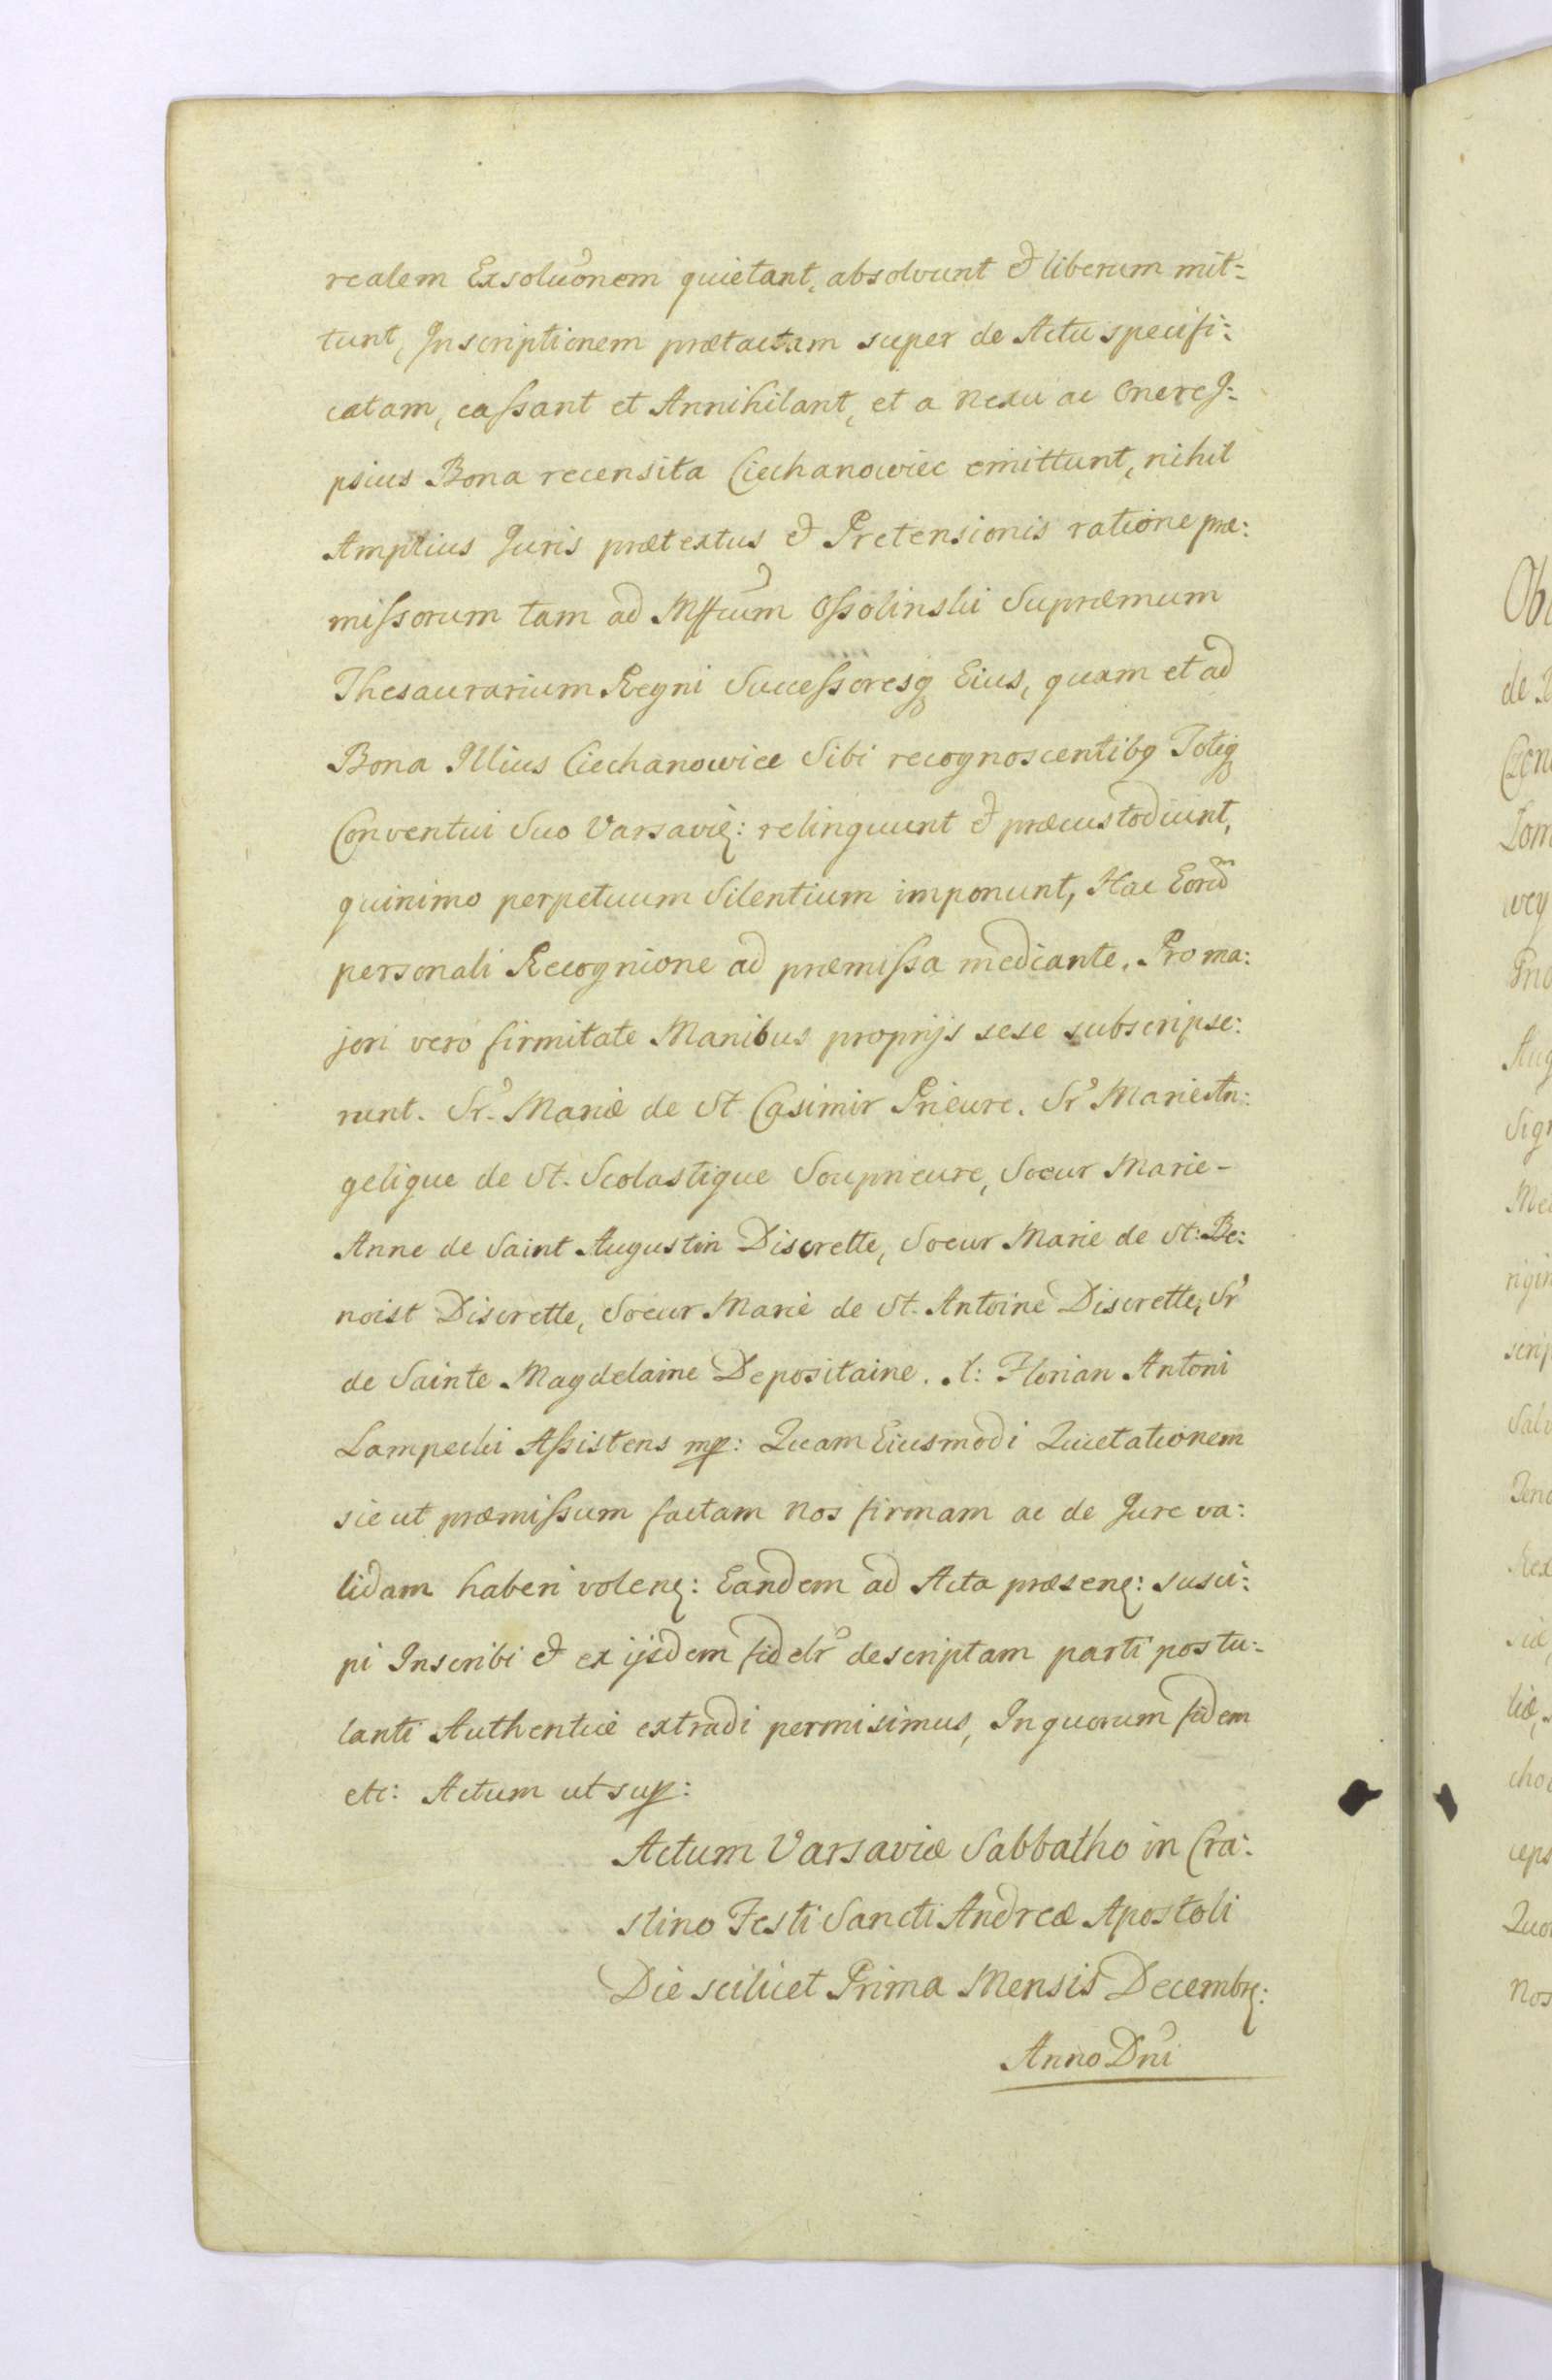 realem Exsoluónem quietant, absolvunt & liberum mit=
tunt, Inscriptionem prætactam super de Actu specifi:
catam, cassant et Annihilant, et a nexu ac Onere I:
psius Bona recensita Ciechanowiec emittunt, nihil
Amplius Juris prætextus & Pretensionis ratione præ:
missorum tam ad Mffcum Ossolinski Supræmum
Thesaurarium Regni Successoresq Eius, quam et ad
Bona Illius Ciechanowice Sibi recognoscentibq Totiq
Conventui Suo Varsavię: relinquunt & præcustodiunt,
quinimo perpetuum Silentium imponunt, Hac Eorūdm
personali Recognione ad præmissa mediante. Pro ma:
jori vero firmitate Manibus proprijs sese subscripse:
runt. Sr. Marie de St Casimir Prieure. Sr Marie An:
gelique de St. Scolastique Souprieure, Soeur Marie-
Anne de Saint Augustin Discrette, Soeur Marie de St: Be:
noist Discrette, Soeur Marie de St. Antoine Discrette, Sr
de Sainte Magdelaine Depositaine. t: Florian Antoni
Lampecki Assistens mp: Quam Eiusmodi Quietationem
sic ut præmissum factam nos firmam ac de Jure va:
lidam haberi voleną: Eandem ad Acta præseną: susci:
pi Inscribi & ex ijsdem fidelr descriptam parti postu:
lanti Authentice extradi permisimus, In quorum fidem
etc: Actum ut sup:
Actum Varsaviæ Sabbatho in Cra:
stino Festi Sancti Andreæ Apostoli
Die scilicet Prima Mensis Decembrę:
Anno Dni